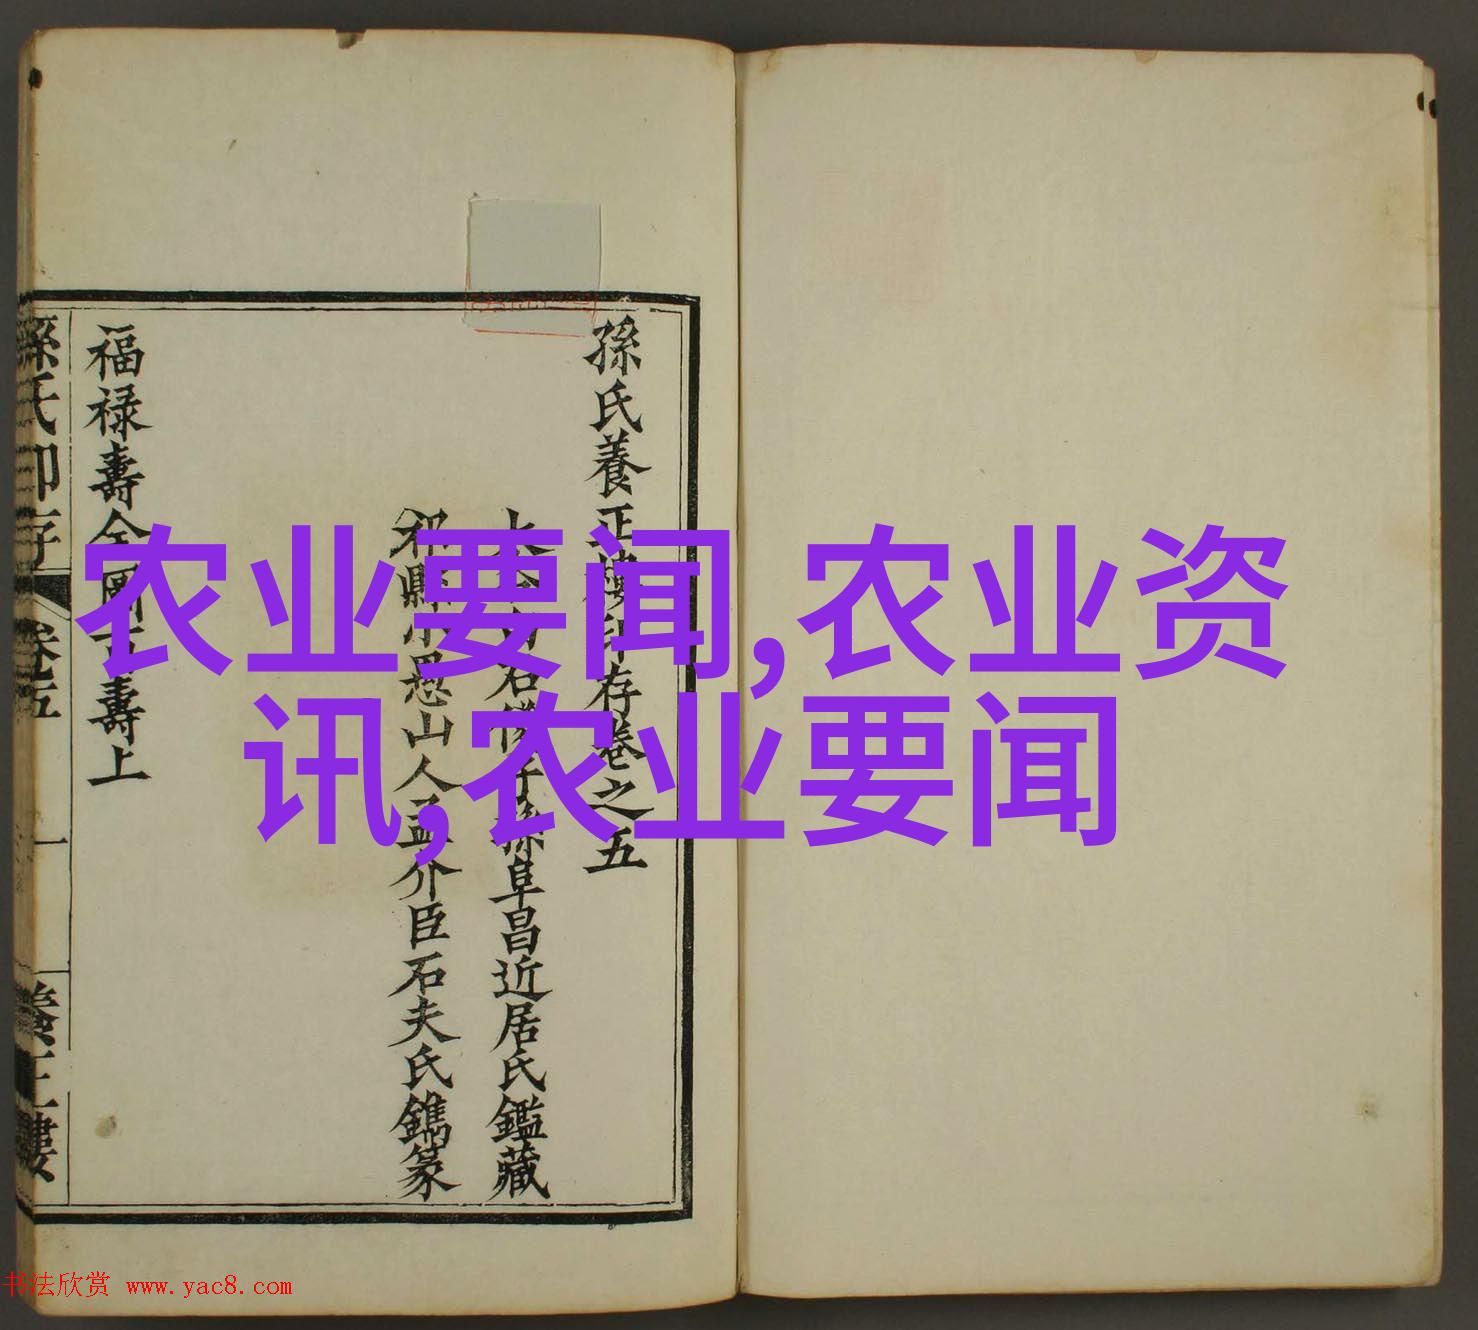 农业要闻,农业资
讯,农业要闻
孫氏養正樓印存卷之五
子孫阜昌近居氏鑑藏
祁縣小愚山人孟介臣石夫氏鐫篆
福禄壽全圖百壽上
孫氏印存 卷五 一 養正樓
书法欣赏 www.yac8.com